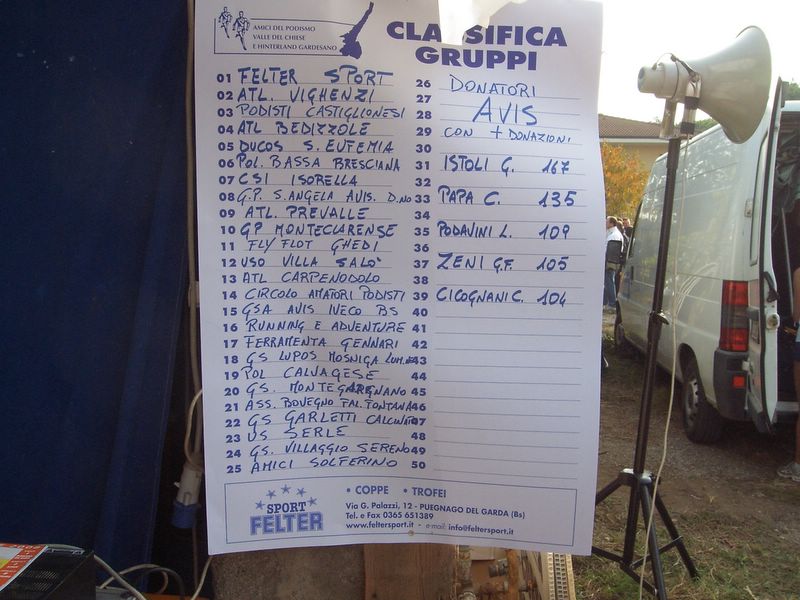 AMICI DEL PODISMO
VALLE DEL CHIESE
E HINTERLAND GARDESANO
CLASSIFICA
GRUPPI
01 FELTER SPORT
02 ATL. VIGHENZI
03 PODISTI CASTIGLIONESI
04 ATL BEDIZZOLE
05 DUCOS S. EUFEMIA
06 POL. BASSA BRESCIANA
07 CSI ISORELLA
08 G.P. S. ANGELA AVIS. D.NO
09 ATL. PREVALLE
10 GP MONTECLARENSE
11 FLY FLOT GHEDI
12 USO VILLA SALO'
13 ATL CARPENODOLO
14 CIRCOLO AMATORI PODISTI
15 GSA AVIS IVECO BS
16 RUNNING E ADVENTURE
17 FERRAMENTA GENNARI
18 GS LUPOS MOSNIGA
19 POL CALVAGESE
20 GS. MONTEGARGNANO
21 ASS. BOVEGNO FAL. FONTANA
22 GS GARLETTI CALCINATO
23 US SERLE
24 GS. VILLAGGIO SERENO
25 AMICI SOLFERINO
26 DONATORI
27
28 AVIS
29 CON + DONAZIONI
30
31 ISTOLI G. 167
32
33 PAPA C. 135
34
35 PODAVINI L. 109
36
37 ZENI G.F. 105
38
39 CICOGNANI C. 104
40
41
42
43
44
45
46
47
48
49
50
SPORT
FELTER
• COPPE • TROFEI
Via G. Palazzi, 12 - PUEGNAGO DEL GARDA (Bs)
Tel. e Fax 0365 651389
www.feltersport.it • e-mail: info@feltersport.it